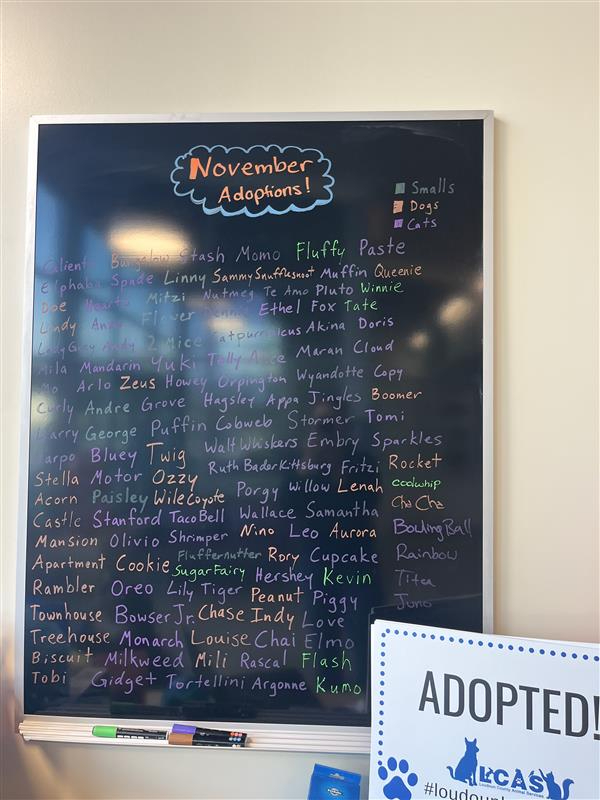 November
Adoptions!
Smalls
Dogs
Cats
Caliente Bungalow Stash Momo Fluffy Paste
Elphaba Spade Linny Sammy Snufflesnoot Muffin Queenie
Doe Mitzi Nutmeg Te Amo Pluto Winnie
Lindy Flower Ethel Fox Tate
Lady Grey Andy 2 Mice Catpurrnicus Akina Doris
Mila Mandarin Yuki Telly Alice Maran Cloud
Mo Arlo Zeus Howey Orpington Wyandotte Copy
Curly Andre Grove Hagsley Appa Jingles Boomer
Larry George Puffin Cobweb Stormer Tomi
Bluey Twig Walt Whiskers Embry Sparkles
Stella Motor Ozzy Ruth Bader Kittsburg Fritzi Rocket
Acorn Paisley Wile Coyote Porgy Willow Lenah coolwhip
Cha Cha
Castle Stanford Taco Bell Wallace Samantha
Mansion Olivio Shrimper Nino Leo Aurora Bowling Ball
Apartment Cookie Fluffernutter Rory Cupcake Rainbow
Sugar Fairy Hershey Kevin
Rambler Oreo Lily Tiger Peanut Piggy
Juno
Townhouse Bowser Jr. Chase Indy Love
Treehouse Monarch Louise Chai Elmo
Biscuit Milkweed Mili Rascal Flash
Tobi Gidget Tortellini Argonne Kumo
ADOPTED!
LCAS
Loudoun County Animal Services